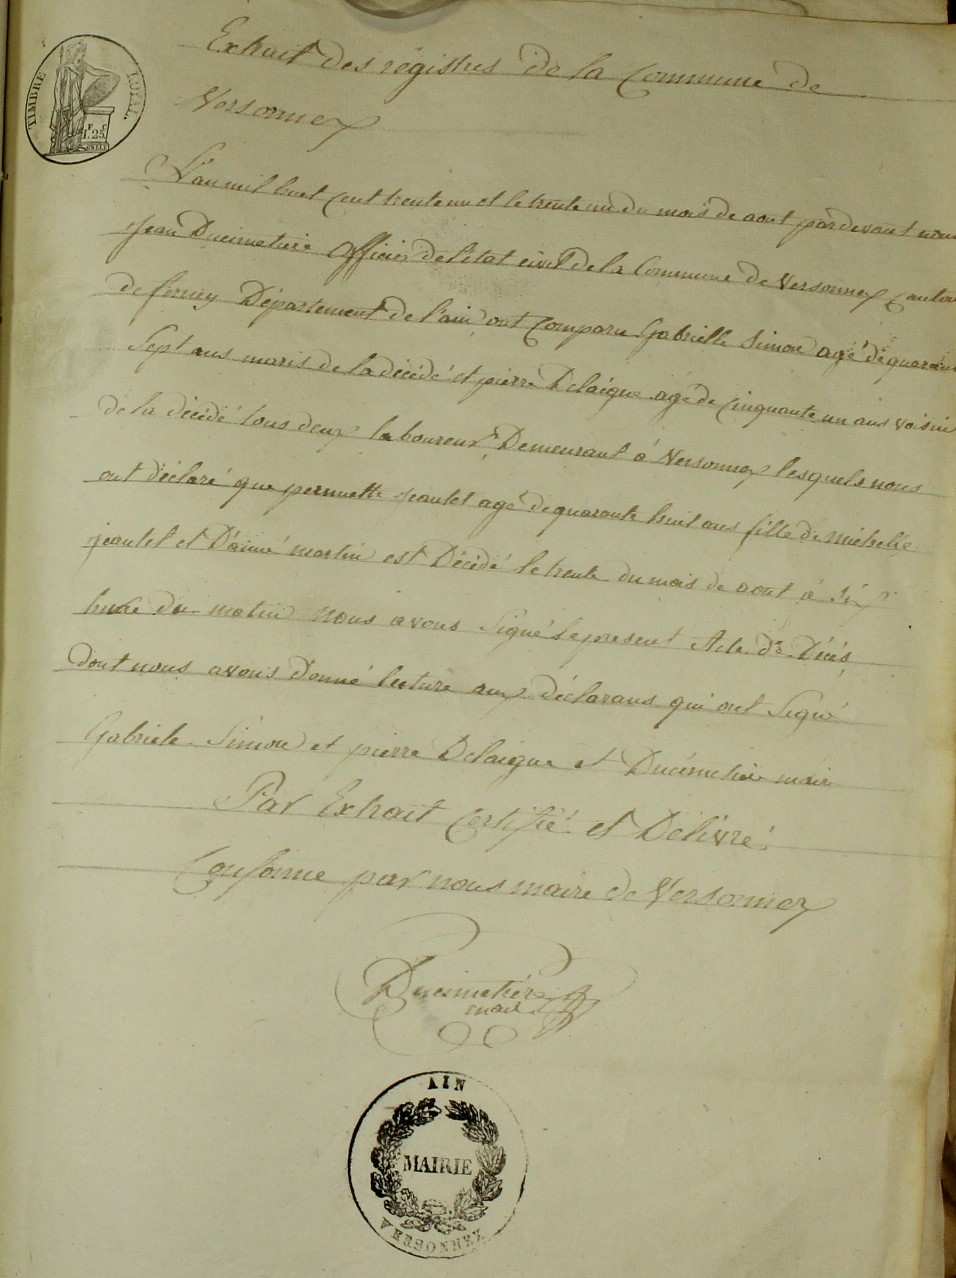 TIMBRE ROYAL
1F 25C
Extrait des régistres de la Commune de
Versonnex
L'an mil huit cent trente un et le trente un du mois de aout pardevant nous
Jean Ducimetière officier de l'état civil de la Commune de Versonnex canton
de ferney Département de l'ain ont comparu Gabrielle Simon agé de quarante
Sept ans maris de la décédé et pierre Delaigue agé de cinquante un ans voisin
de la décédé tous deux laboureur Demeurant à Versonnex lesquels nous
ont déclaré que pernette jeantet agé de quarante huit ans fille de michelle
jeantet et D'aimé martin est Décédé le trente du mois de aout à Six
heure du matin nous avons Signé le present Acte de Décés
dont nous avons Donné lecture aux déclarans qui ont Signé
Gabriele Simon et pierre Delaigue et Ducimetière maire
Par Extrait Certifié et Délivré
Conforme par nous maire de Versonnex
Ducimetière
maire
AIN
MAIRIE
VERSONNEX